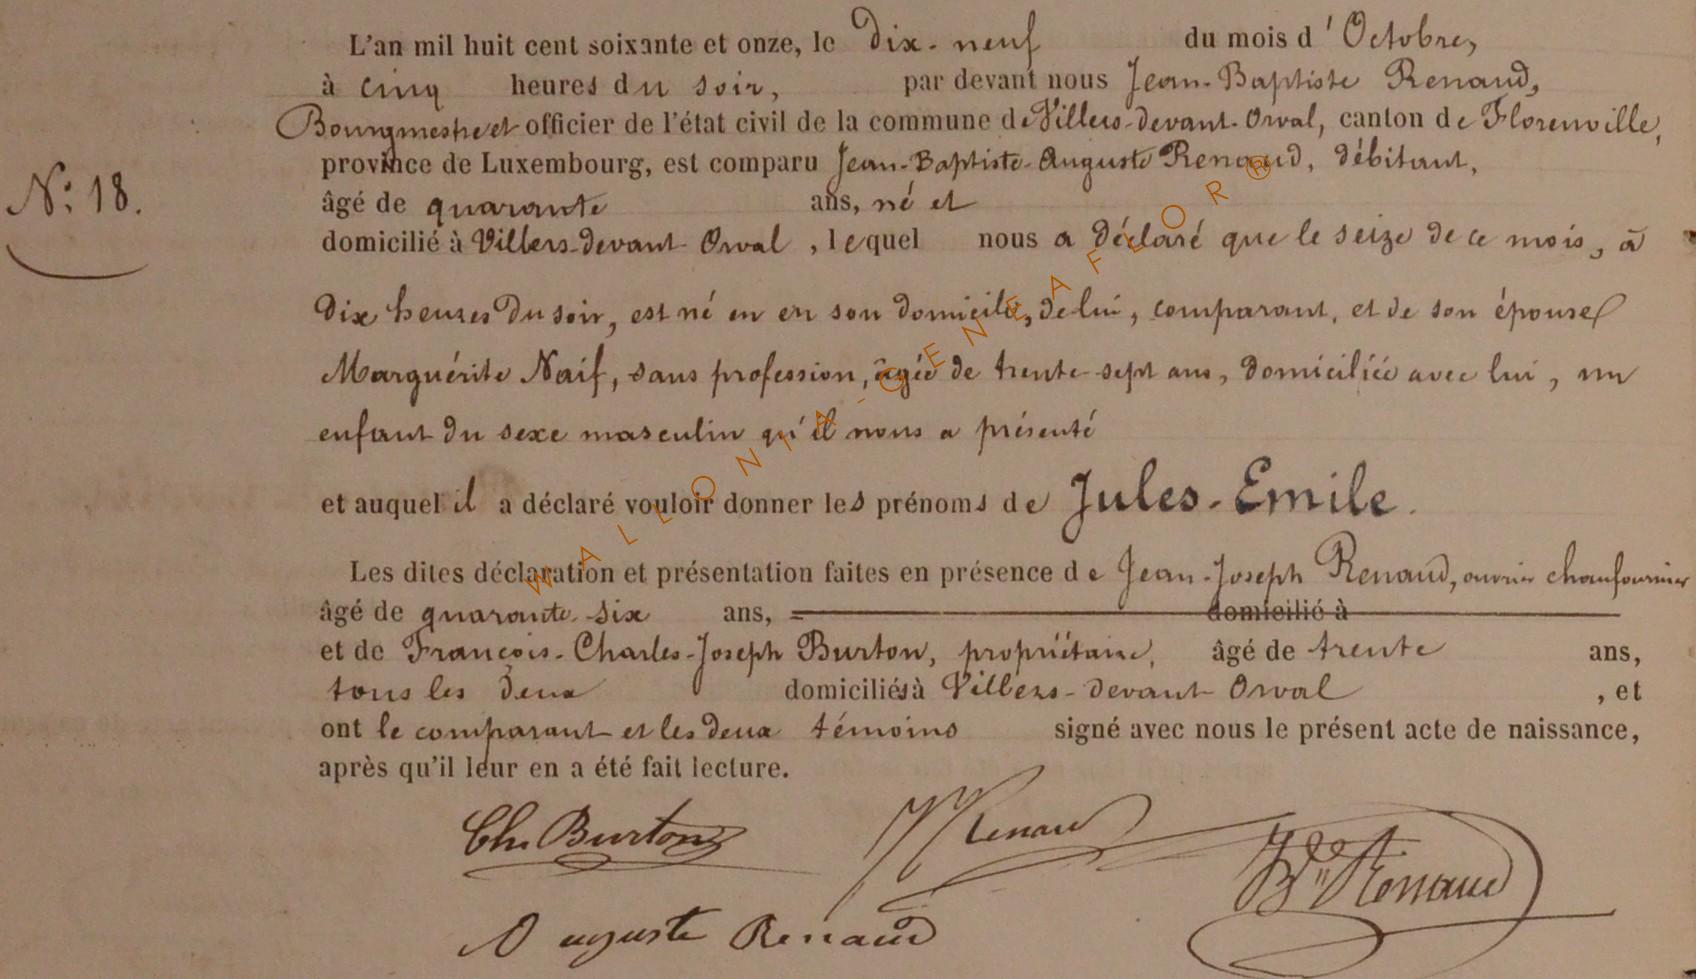 L'an mil huit cent soixante et onze, le Dix-neuf du mois d'Octobre,
à cinq heures du soir, par devant nous Jean-Baptiste Renaud,
Bourgmestre et officier de l'état civil de la commune de Villers-devant-Orval, canton de Florenville,
province de Luxembourg, est comparu Jean-Baptiste-Auguste Renaud, débitant,
N: 18.
âgé de quarante ans, né et
domicilié à Villers-devant-Orval, lequel nous a déclaré que le seize de ce mois, à
Dix heures Du soir, est né en en son domicile, de lui, comparant, et de son épouse
Marguérite Naif, sans profession, âgée de trente-sept ans, domiciliée avec lui, un
enfant du sexe masculin qu'il nous a présenté
et auquel il a déclaré vouloir donner les prénoms de Jules-Emile.
Les dites déclaration et présentation faites en présence de Jean-Joseph Renaud, ouvrier chaufournier
âgé de quarante-six ans, domicilié à
et de François-Charles-Joseph Burton, propriétaire, âgé de trente ans,
tous les deux domiciliés à Villers-devant-Orval, et
ont le comparant et les deux témoins signé avec nous le présent acte de naissance,
après qu'il leur en a été fait lecture.
Ch. Burton JJ Renaud
Bte Renaud
Auguste Renaud
WALLONIA-GENEAFLOR®